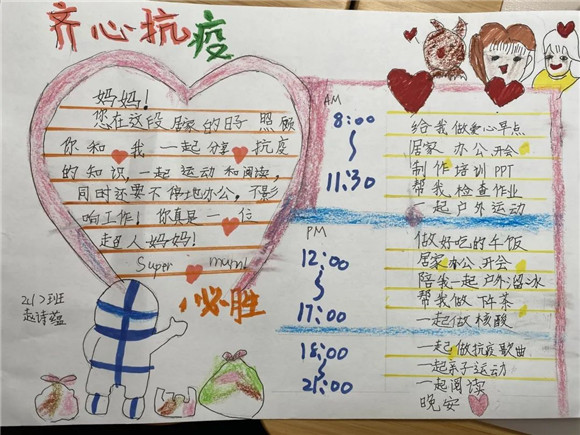 齐心抗疫
妈妈!
您在这段居家的日子照顾
你和我一起分享抗疫
的知识,一起运动和阅读,
同时还要不停地办公,不影
响工作!你真是一位
超人妈妈!
Super mum!
必胜
2(1)班
赵诗蕴
AM
8:00
11:30
给我做爱心早点
居家办公开会
制作培训PPT
帮我检查作业
一起户外运动
PM
12:00
17:00
做好吃的午饭
居家办公开会
陪我一起户外溜冰
帮我做下午茶
一起做核酸
18:00
21:00
一起做抗疫歌曲
一起亲子运动
一起阅读
晚安